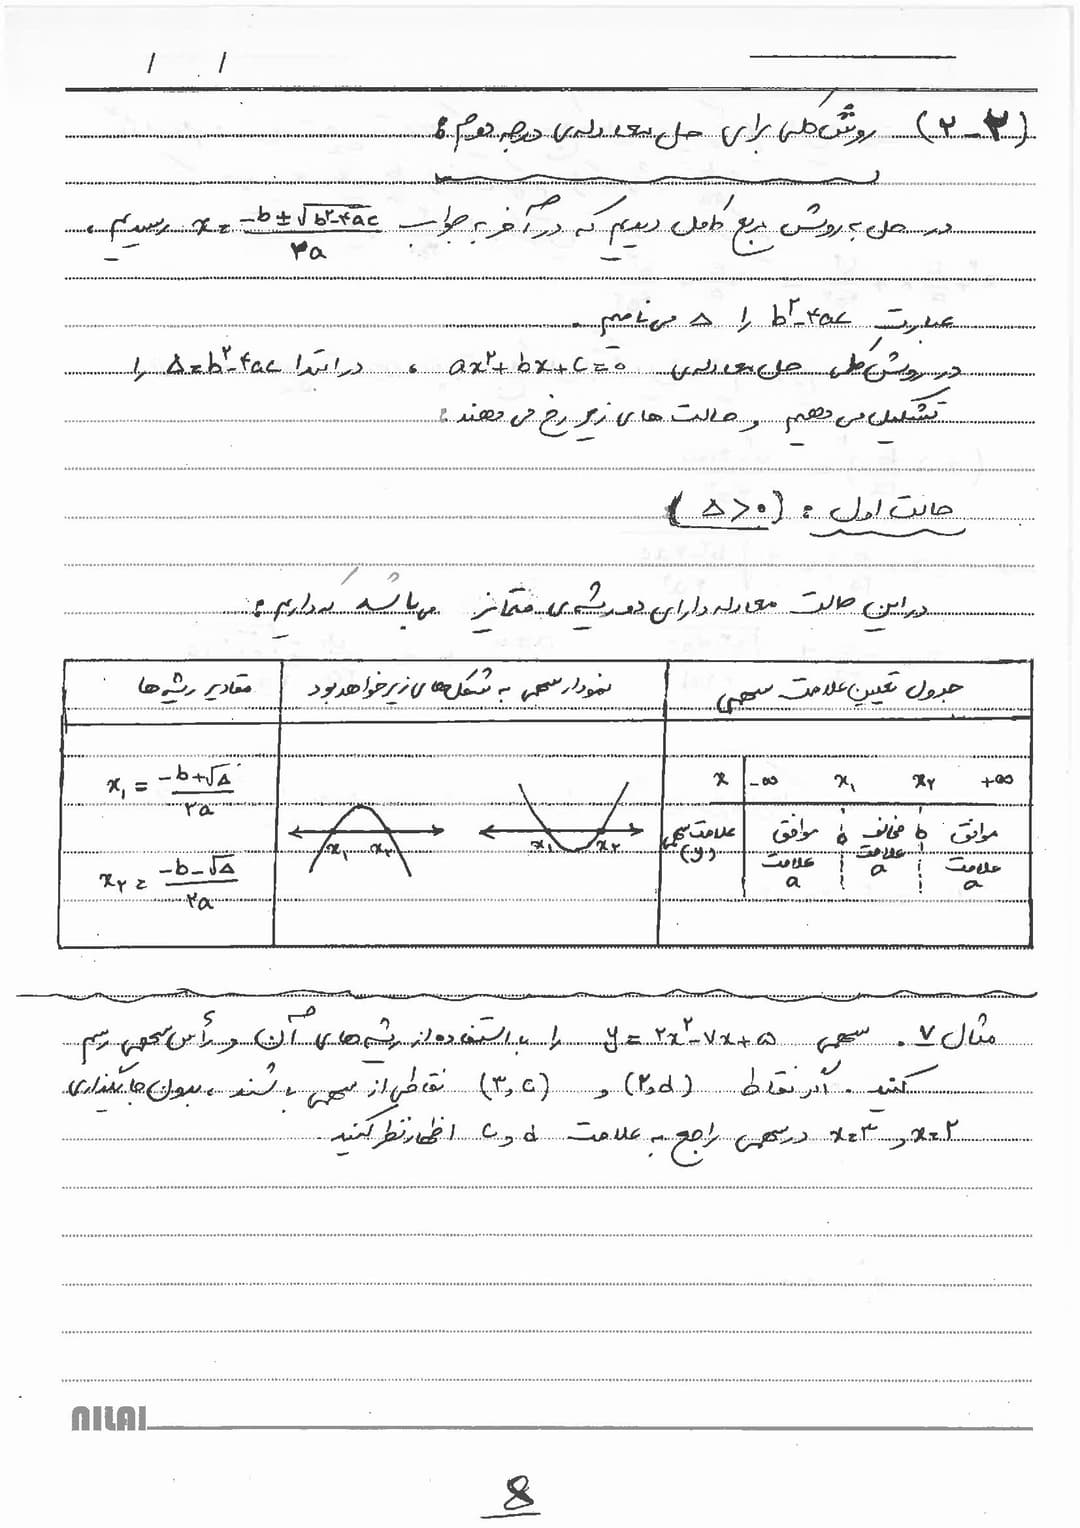 (۲-۳) روش کلی برای حل معادله‌ی درجه دوم:
در حل به روش مربع کامل دیدیم که در آخر به جواب x = (-b ± √(b²-۴ac)) / ۲a رسیدیم،
عبارت b²-۴ac را Δ می نامیم.
در روش کلی حل معادله‌ی ax²+bx+c=۰ ، در ابتدا Δ=b²-۴ac را
تشکیل می دهیم و حالت های زیر رخ می دهند:
حالت اول: (Δ>۰)
در این حالت معادله دارای دو ریشه‌ی متمایز می باشد که داریم:
جدول تعیین علامت سهمی
نمودار سهمی به شکل‌های زیر خواهد بود
مقادیر ریشه ها
x -∞ x₁ x₂ +∞
علامت سهمی (y) موافق علامت a ۰ مخالف علامت a ۰ موافق علامت a
x₁ x₂
x₁ x₂
x₁ = (-b+√Δ) / ۲a
x₂ = (-b-√Δ) / ۲a
مثال ۷. سهمی y = ۲x²-۷x+۵ را با استفاده از ریشه های آن و رأس سهمی رسم
کنید. اگر نقاط (۲,d) و (۳,c) نقاطی از سهمی باشند، بدون جایگذاری
x=۲ و x=۳ در سهمی راجع به علامت d و c اظهار نظر کنید.
NILAI
8